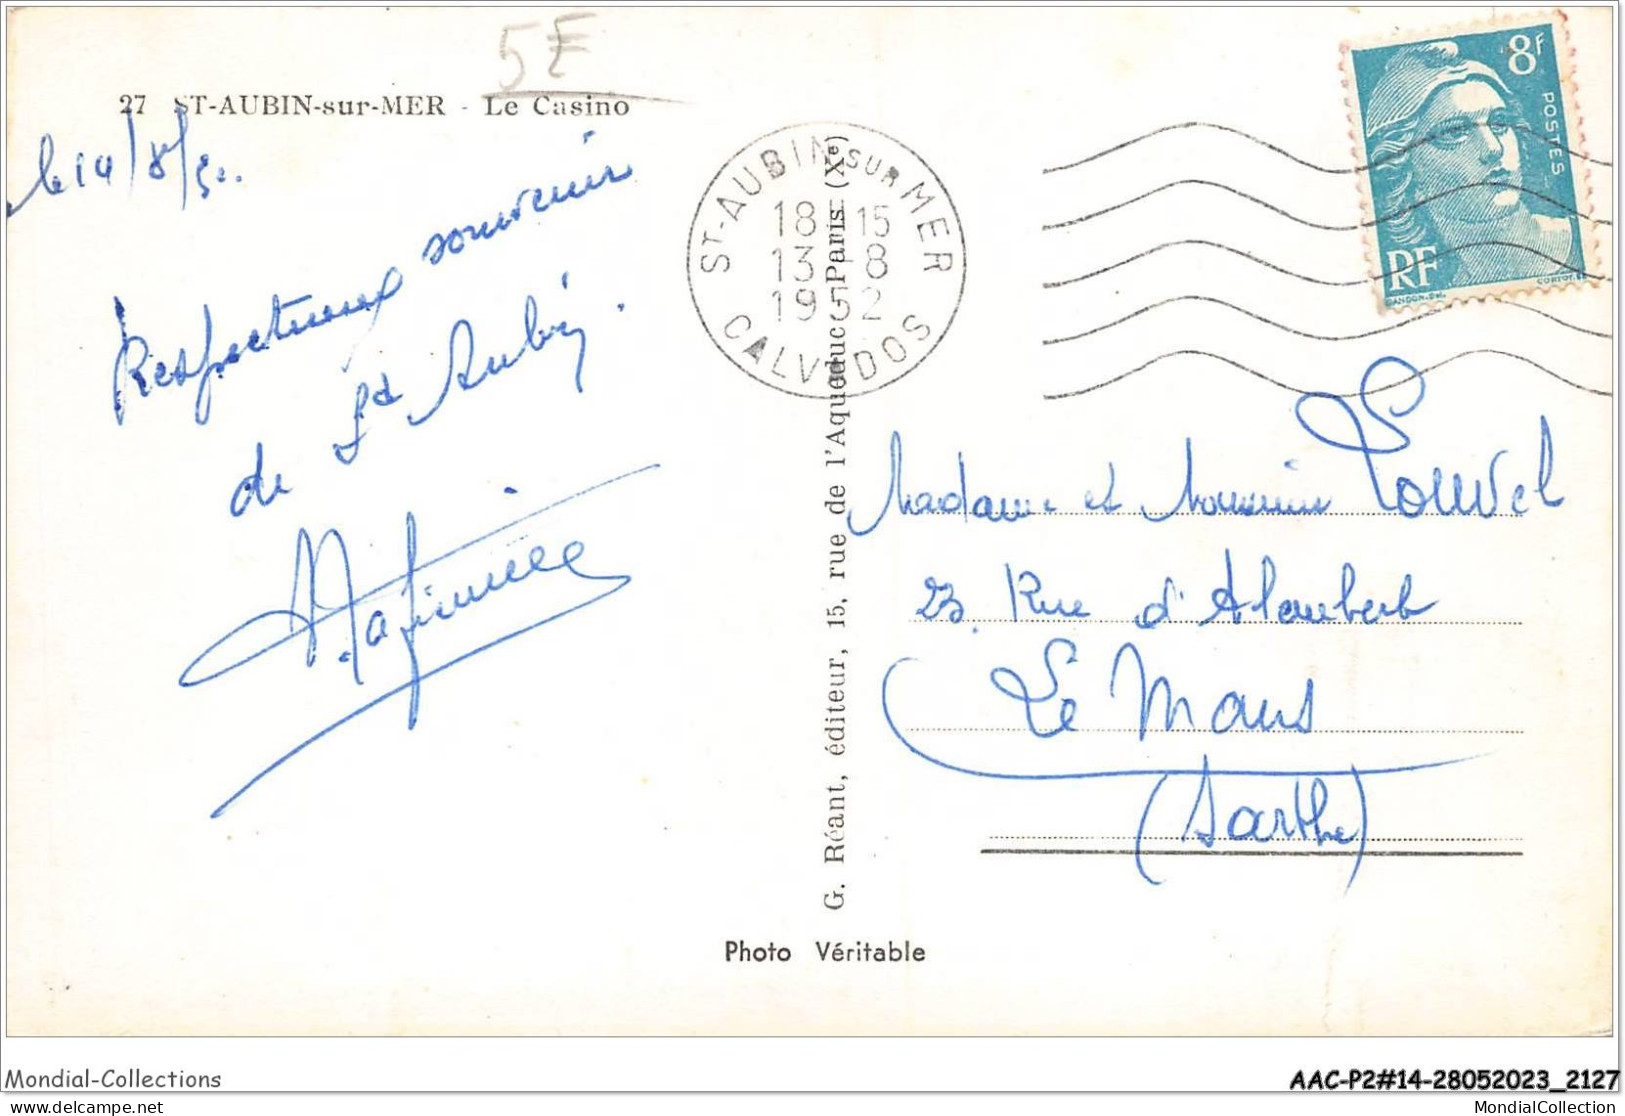 5F
27 ST-AUBIN-sur-MER - Le Casino
le 14/8/52.
Respectueux souvenir
de St Aubin.
ST-AUBIN SUR MER
18 15
13-8
1952
CALVADOS
8F
POSTES
RF
GANDON. Del.
CORTOT. SC
G. Réant, éditeur, 15, rue de l'Aqueduc - Paris (Xe)
Madame et Monsieur Louvel
23. Rue d'Alembert
Le Mans
(Sarthe)
Photo Véritable
Mondial-Collections
AAC-P2#14-28052023_2127
delcampe.net
MondialCollection